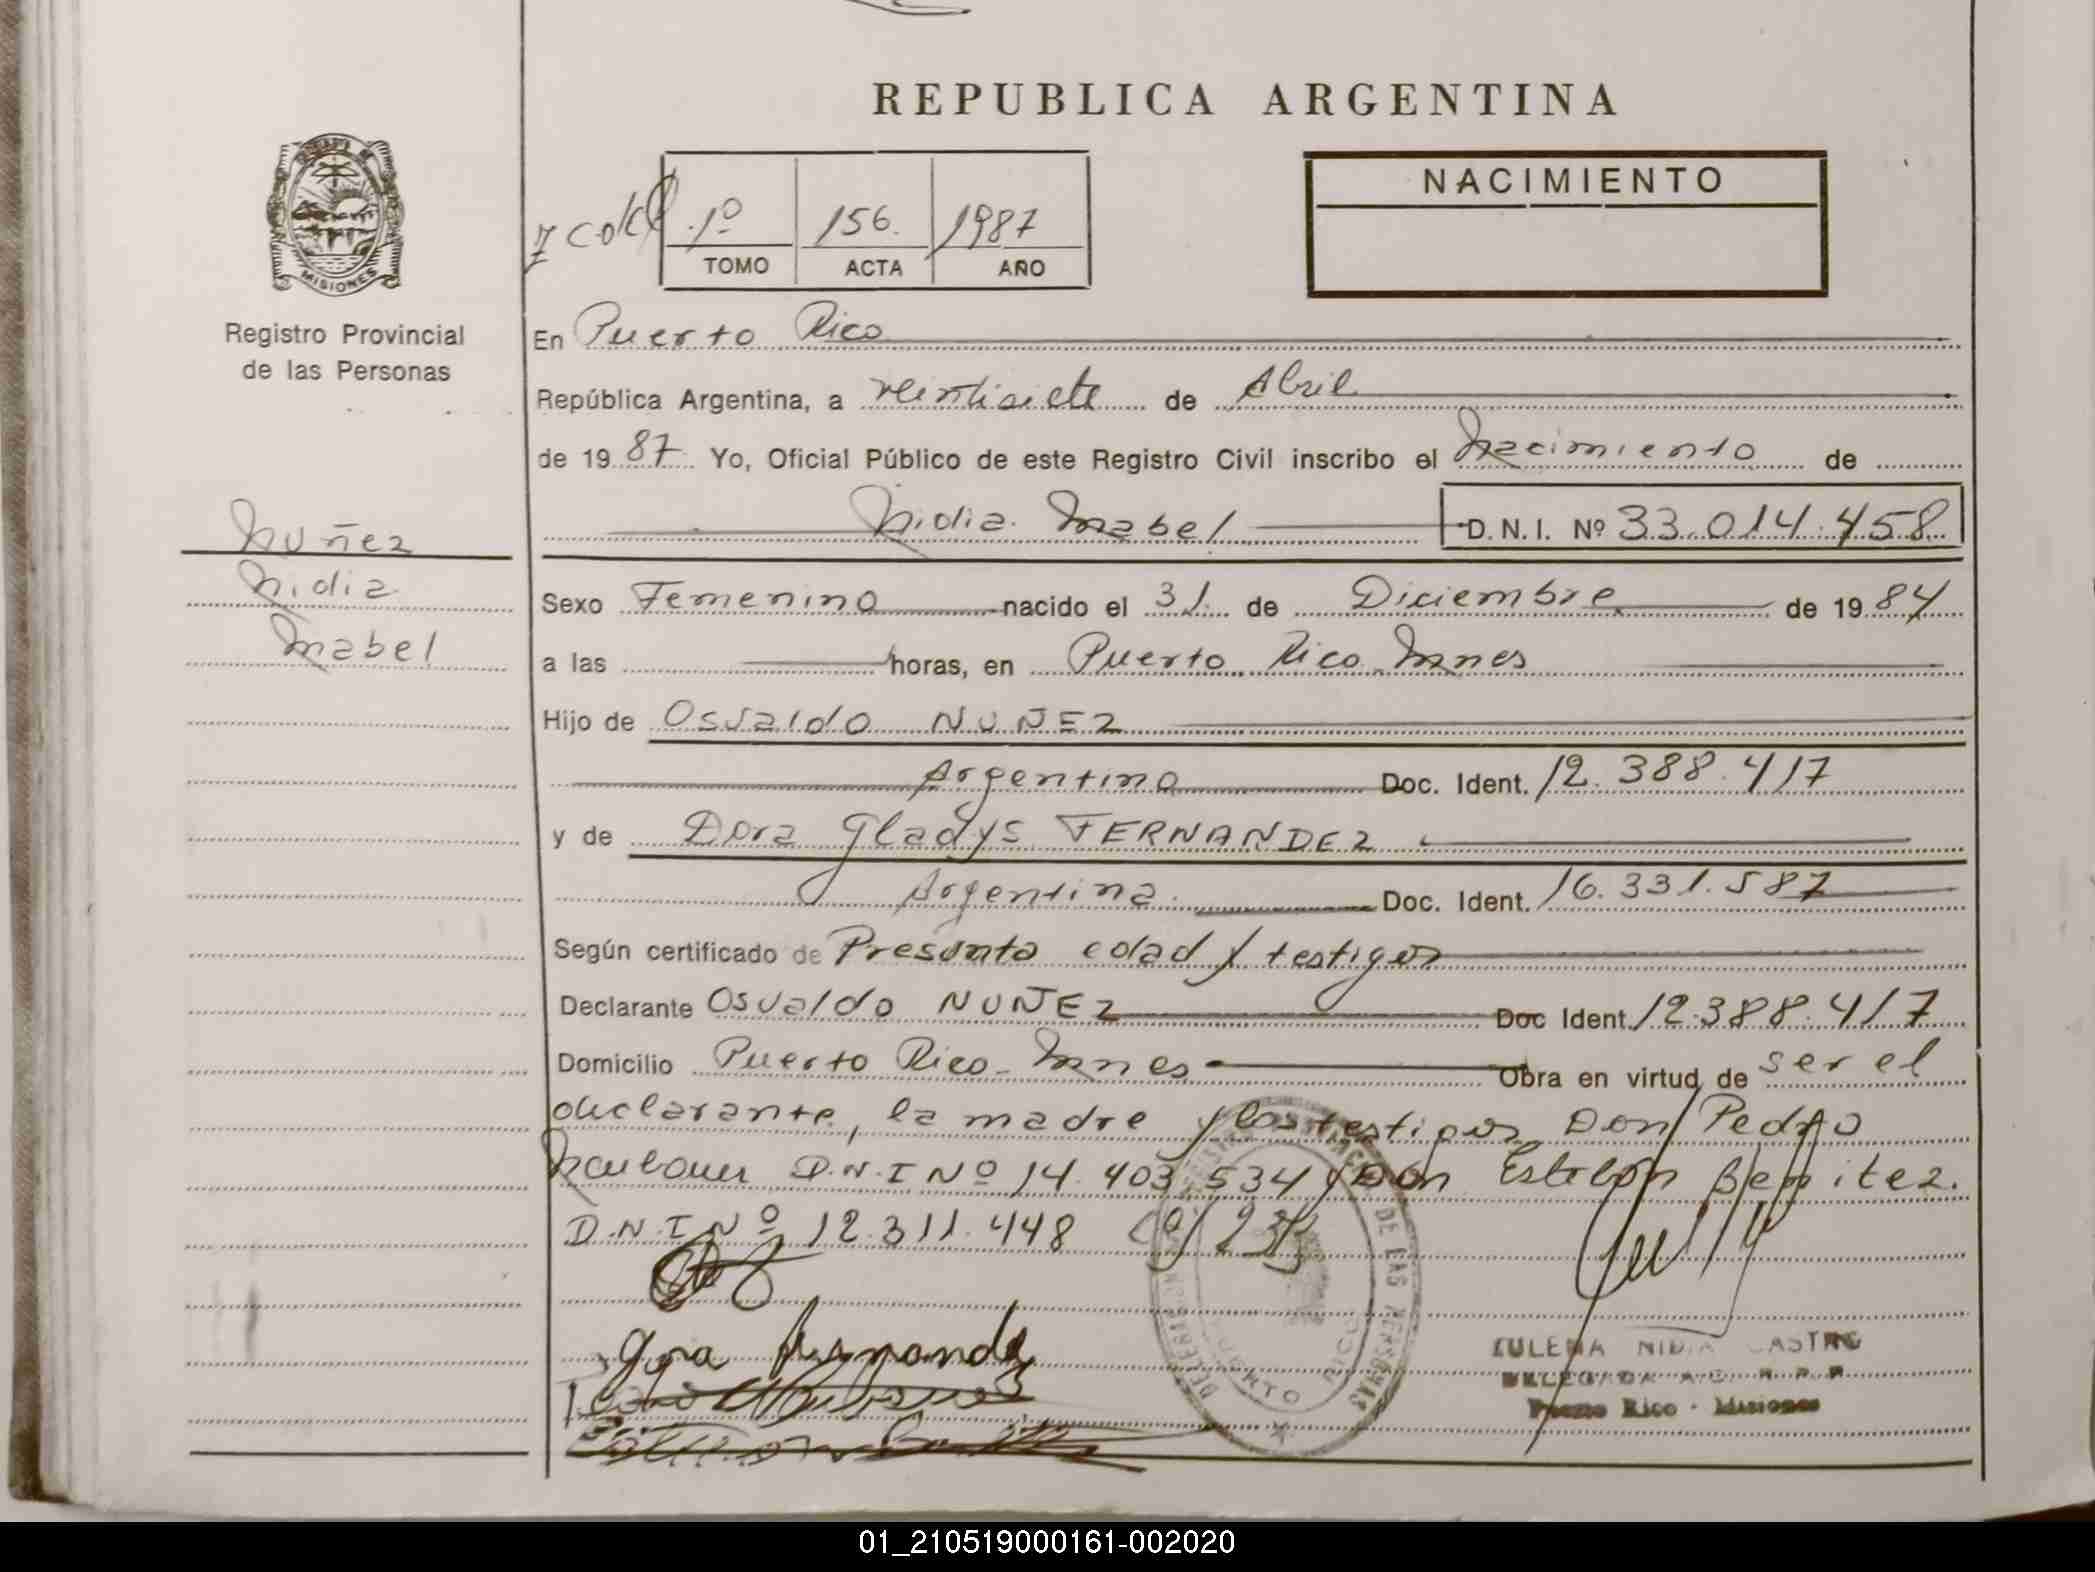 REPUBLICA ARGENTINA
NACIMIENTO
1º 156. 1987
TOMO ACTA AÑO
MISIONES
Registro Provincial
de las Personas
En Puerto Rico
República Argentina, a veintisiete de Abril
de 1987 Yo, Oficial Público de este Registro Civil inscribo el Nacimiento de
Nidia Mabel D.N.I. Nº 33.014.458
Nuñez
Nidia
Mabel
Sexo Femenino nacido el 31 de Diciembre de 1984
a las horas, en Puerto Rico Mnes
Hijo de Osvaldo NUÑEZ
Argentino Doc. Ident. 12.388.417
y de Dora Gladys FERNANDEZ
Argentina Doc. Ident. 16.331.587
Según certificado de Presunta edad y testigos
Declarante Osvaldo NUÑEZ Doc Ident. 12.388.417
Domicilio Puerto Rico - Mnes Obra en virtud de ser el
declarante, la madre y los testigos Don Pedro
D.N.I Nº 14.403.534 y Don Esteban Benitez.
D.N.I Nº 12.311.448
PUERTO RICO
DE LAS PERSONAS
ZULEMA NIDIA CASTRO
DELEGADA
Puerto Rico - Misiones
01_210519000161-002020